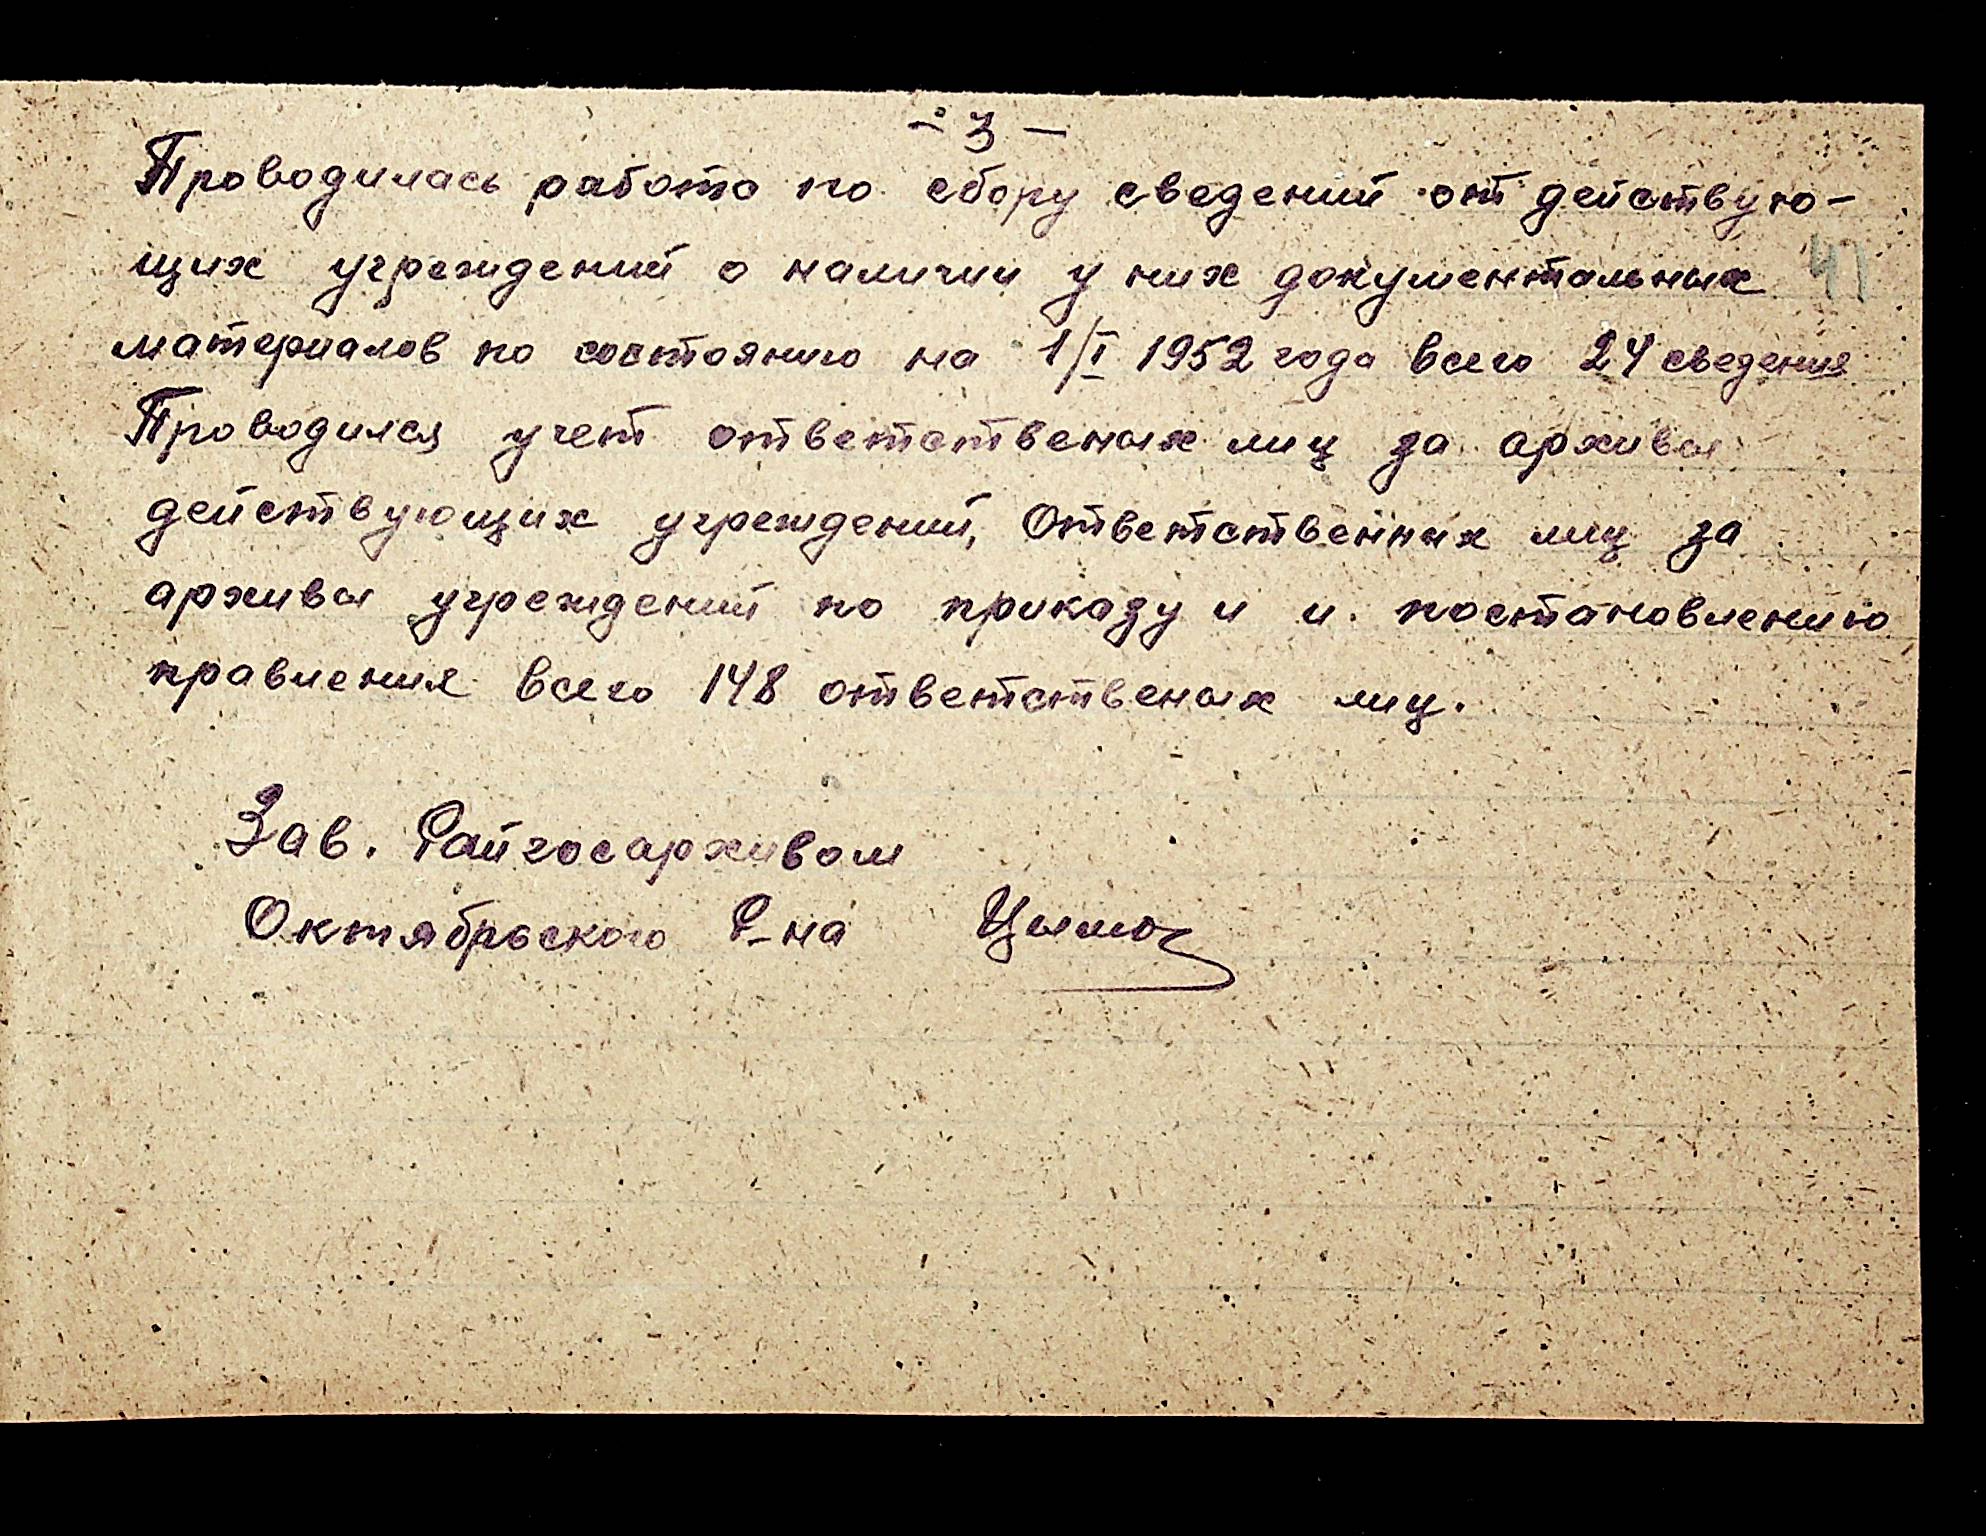 - 3 -
Проводилась работа по сбору сведений от действую-
щих учреждений о наличии у них документальных
41
материалов по состоянию на 1/I 1952 года всего 24 сведения
Проводился учет ответственых лиц за архивы
действующих учреждений, Ответственных лиц за
архивы учреждений по приказу и и. постановлению
правления всего 148 ответственых лиц.
Зав. Райгосархивом
Октябрьского Р-на